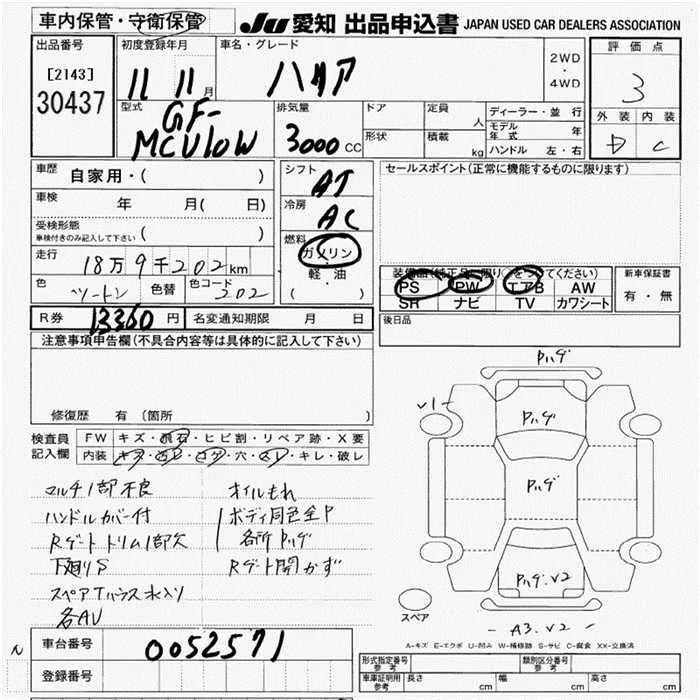 車内保管・守衛保管
JU 愛知 出品申込書 JAPAN USED CAR DEALERS ASSOCIATION
出品番号
[2143]
30437
初度登録年月
11 11月
車名・グレード
ハリア
2WD
・
4WD
評価点
3
外装 内装
D C
型式
GF-
MCU10W
排気量
3000CC
ドア
形状
定員 人
積載 kg
ディーラー・並行
モデル年式 年
ハンドル 左・右
車歴
自家用・( )
車検
年 月( 日)
受検形態
車検付きのみ記入して下さい ( )
走行
18万9千202km
色
ツートン
色替
色コード
202
シフト
AT
冷房
AC
燃料
ガソリン
軽・油
( )
セールスポイント(正常に機能するものに限ります)
装備品(純正品に限り○をつけてください)
PS PW エアB AW
SR ナビ TV カワシート
新車保証書
有・無
R券 13360円 名変通知期限 月 日
後日品
注意事項申告欄(不具合内容等は具体的に記入して下さい)
修復歴 有(箇所
検査員
記入欄
FW キズ・飛石・ヒビ割・リペア跡・X要
内装 キズ・ヨゴレ・コゲ・穴・スレ・キレ・破レ
マルチ1部不良
ハンドルカバー付
Rゲートトリム1部欠
下廻りS
スペアTハウス水入り
各AV
オイルもれ
ボディ同色全P
各所Pハゲ
Rゲート開かず
Pハゲ
V1
Pハゲ
Pハゲ
Pハゲ・V2
スペア
A3・V2
A-キズ E-エクボ U-凹み W-補修跡 S-サビ C-腐食 XX-交換済
N
車台番号
0052571
登録番号
形式指定番号
参考
類別区分番号
参考
車庫証明用
参考
長さ cm 幅 cm 高さ cm